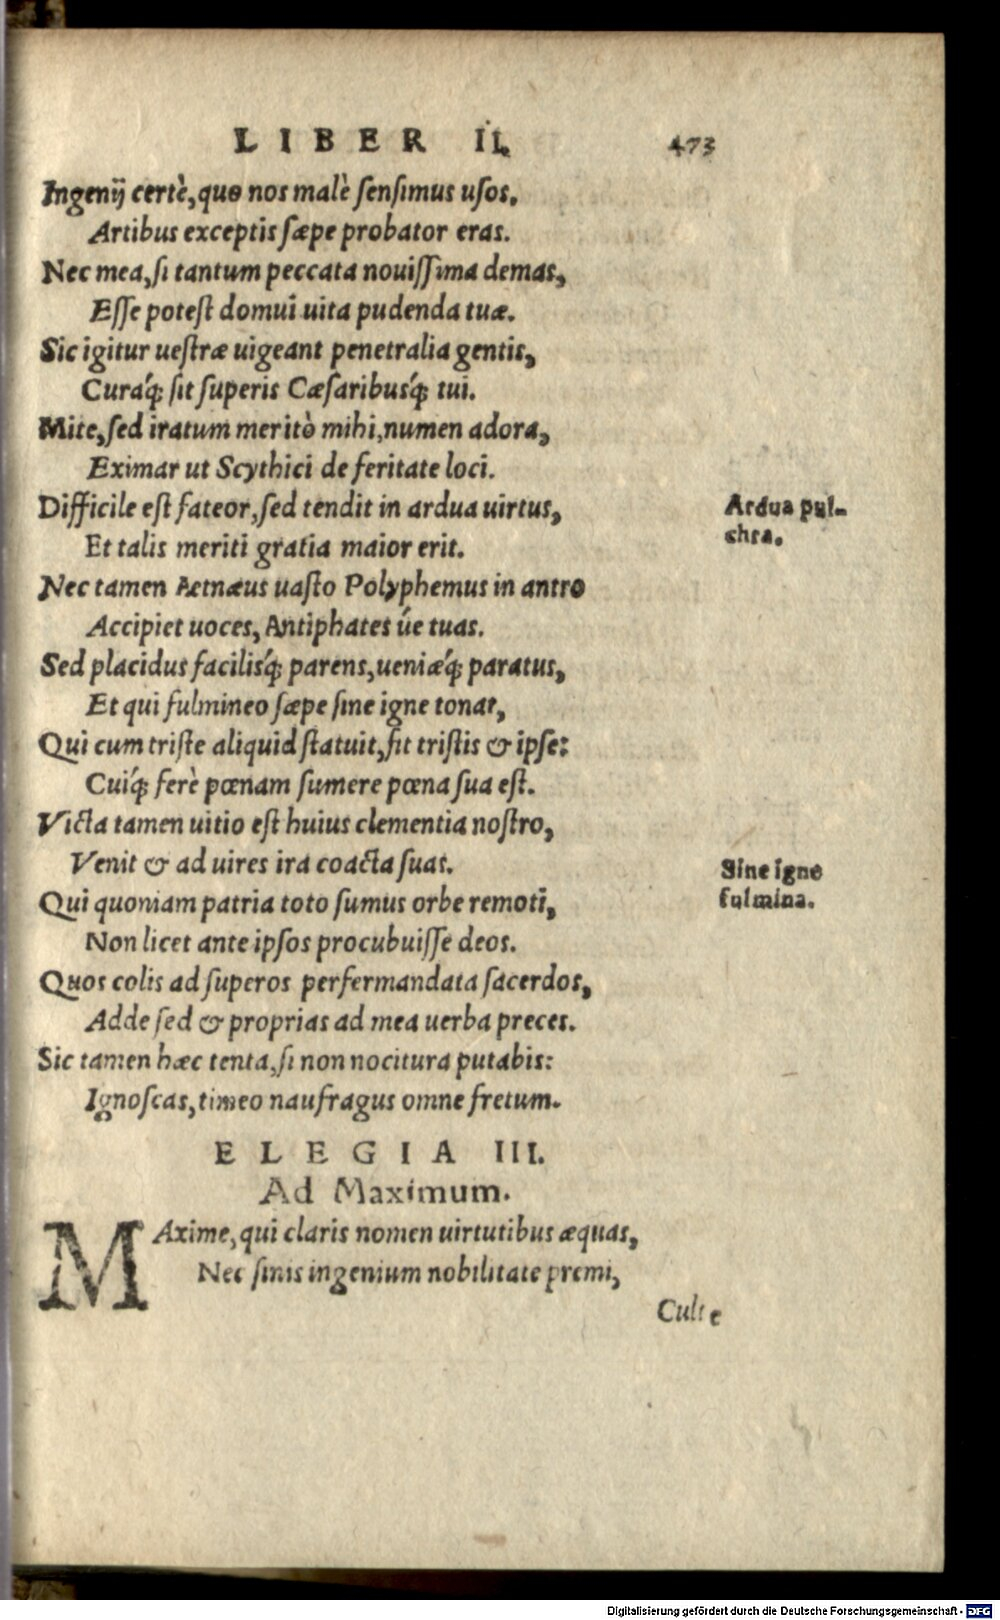 LIBER II. 473
Ingenij certè, quo nos malè ſenſimus uſos,
Artibus exceptis ſæpe probator eras.
Nec mea, ſi tantum peccata nouiſſima demas,
Eſſe poteſt domui uita pudenda tuæ.
Sic igitur ueſtræ uigeant penetralia gentis,
Curaq́ꝫ ſit ſuperis Cæſaribusq́ꝫ tui.
Mite, ſed iratum meritò mihi, numen adora,
Eximar ut Scythici de feritate loci.
Difficile eſt fateor, ſed tendit in ardua uirtus,
Ardua pul-
chra.
Et talis meriti gratia maior erit.
Nec tamen Aetnæus uaſto Polyphemus in antro
Accipiet uoces, Antiphates úe tuas.
Sed placidus facilisq́ꝫ parens, ueniæq́ꝫ paratus,
Et qui fulmineo ſæpe ſine igne tonat,
Qui cum triſte aliquid ſtatuit, fit triſtis & ipſe:
Cuiq́ꝫ ferè pœnam ſumere pœna ſua eſt.
Victa tamen uitio eſt huius clementia noſtro,
Venit & ad uires ira coacta ſuas.
Sine igne
fulmina.
Qui quoniam patria toto ſumus orbe remoti,
Non licet ante ipſos procubuiſſe deos.
Quos colis ad ſuperos perfermandata ſacerdos,
Adde ſed & proprias ad mea uerba preces.
Sic tamen hæc tenta, ſi non nocitura putabis:
Ignoſcas, timeo naufragus omne fretum.
ELEGIA III.
Ad Maximum.
MAxime, qui claris nomen uirtutibus æquas,
Nec ſinis ingenium nobilitate premi,
Culte
Digitalisierung gefördert durch die Deutsche Forschungsgemeinschaft - DFG